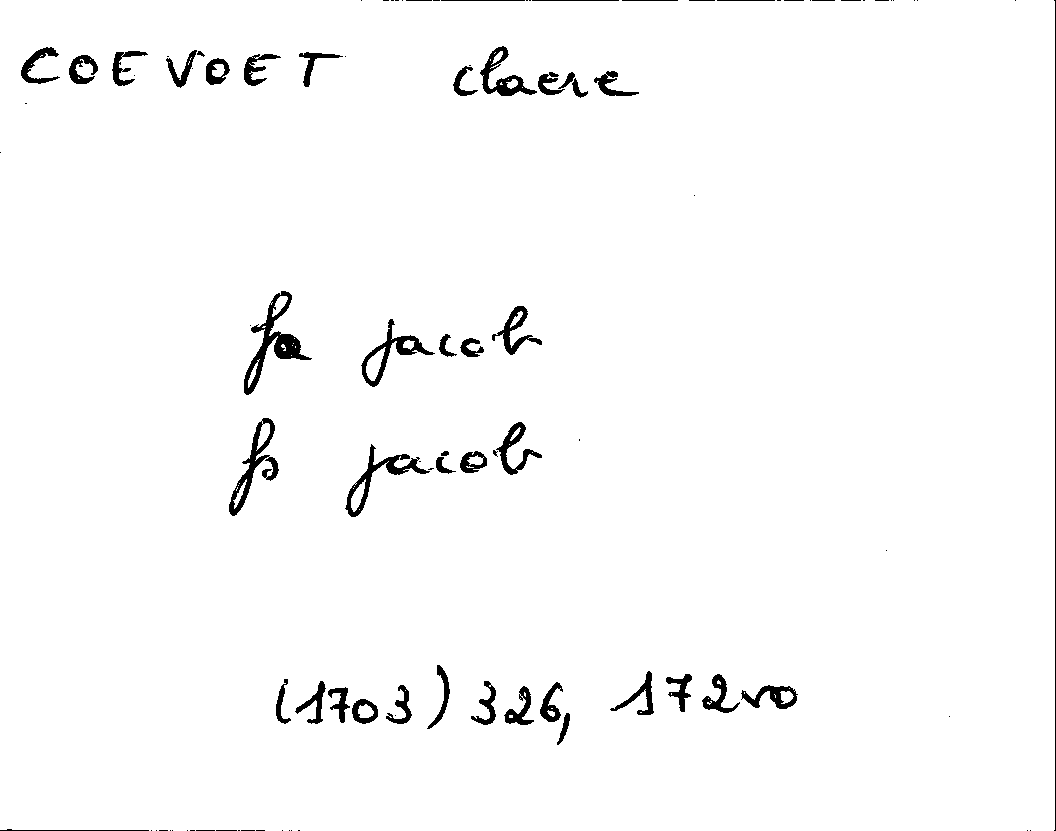 COEVOET claere
fa jacob
fs jacob
(1703) 326, 172vo